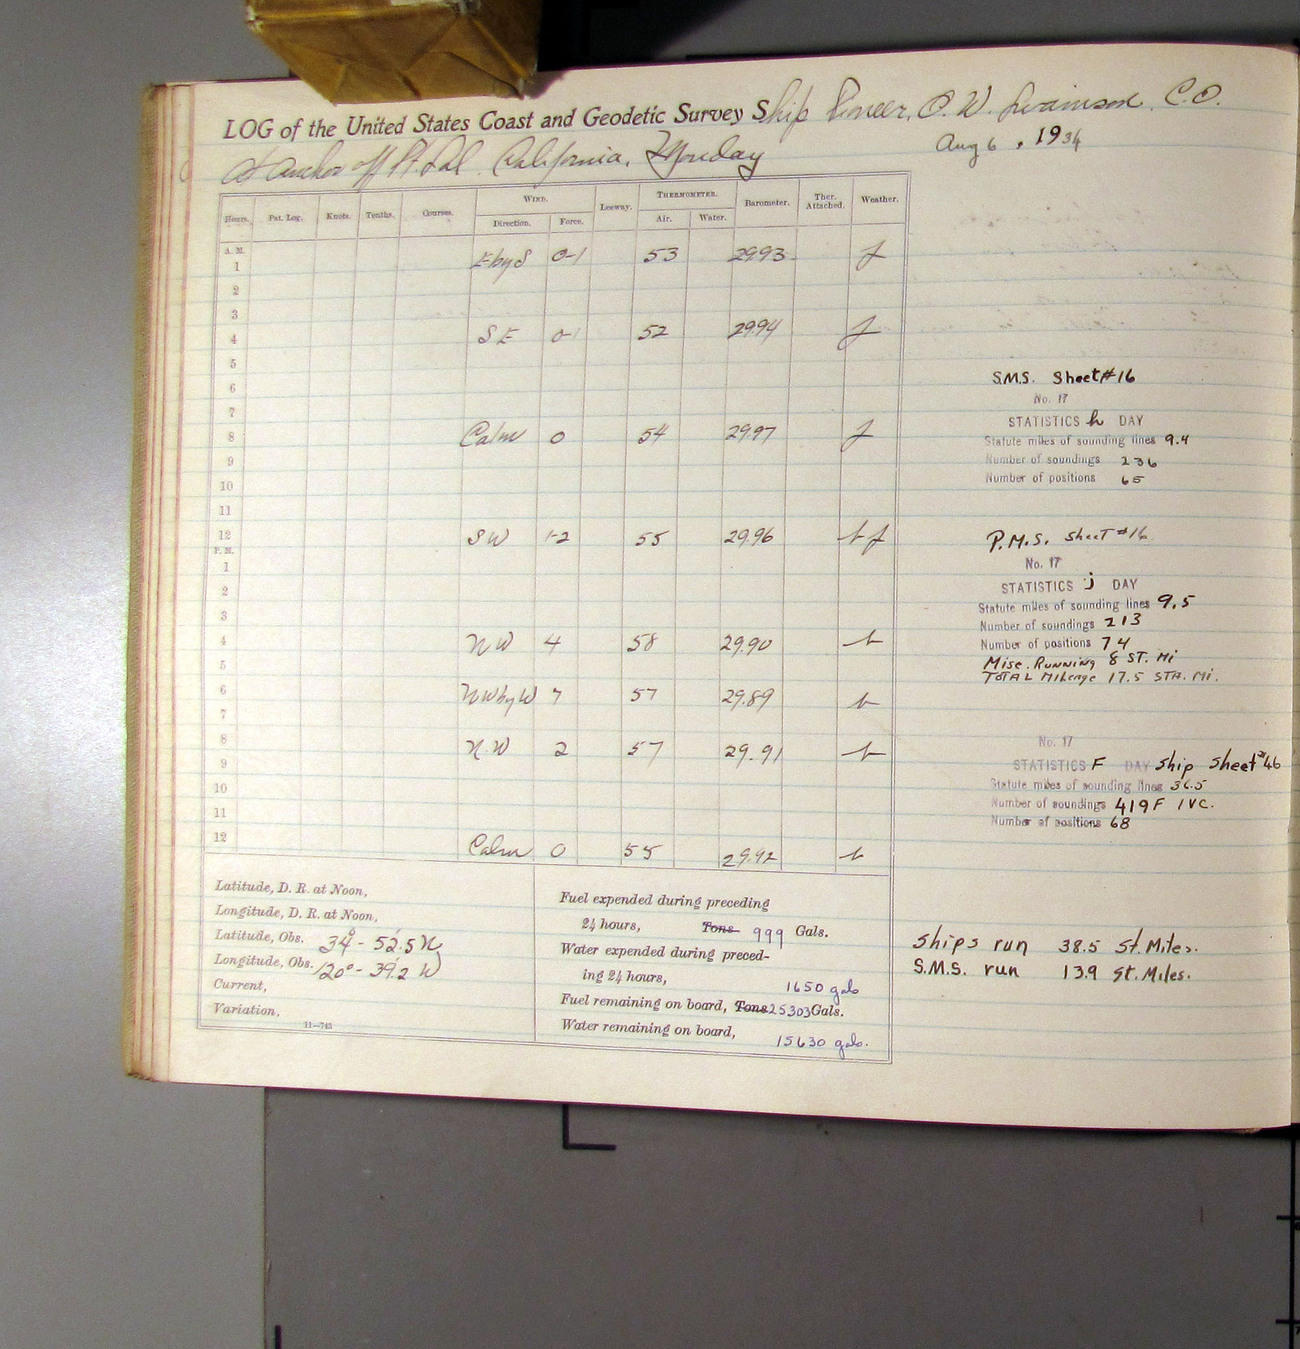 LOG of the United States Coast and Geodetic Survey Ship Pioneer, O. W. Swainson, C.O.
At anchor off Pt. Sal. California, Monday Aug 6, 1934
Hours. Pat. Log. Knots. Tenths. Courses. WIND. Direction. Force. Leeway. THERMOMETER. Air. Water. Barometer. Ther. Attached. Weather.
A. M.
1 E by S 0-1 53 29.93 f
2
3
4 SE 0-1 52 29.94 f
5
6
7
8 Calm 0 54 29.97 f
9
10
11
12 SW 1-2 55 29.96 bf
P. M.
1
2
3
4 NW 4 58 29.90 b
5
6 NW by W 7 57 29.89 b
7
8 N.W 2 57 29.91 b
9
10
11
12 Calm 0 55 29.92 b
S.M.S. Sheet #16
No. 17
STATISTICS h DAY
Statute miles of sounding lines 9.4
Number of soundings 236
Number of positions 65
P.M.S. Sheet #16
No. 17
STATISTICS j DAY
Statute miles of sounding lines 9.5
Number of soundings 213
Number of positions 74
Misc. Running 8 ST. Mi
TOTAL Mileage 17.5 STA. Mi.
No. 17
STATISTICS F DAY Ship Sheet #46
Statute miles of sounding lines 36.5
Number of soundings 419F 1VC.
Number of positions 68
Latitude, D. R. at Noon,
Longitude, D. R. at Noon,
Latitude, Obs. 34° - 52.5' N
Longitude, Obs. 120° - 39.2' W
Current,
Variation,
11—745
Fuel expended during preceding
24 hours, Tons 999 Gals.
Water expended during preced-
ing 24 hours, 1650 gals
Fuel remaining on board, Tons 25303 Gals.
Water remaining on board, 15630 gals.
Ships run 38.5 St. Miles.
S.M.S. run 13.9 St. Miles.